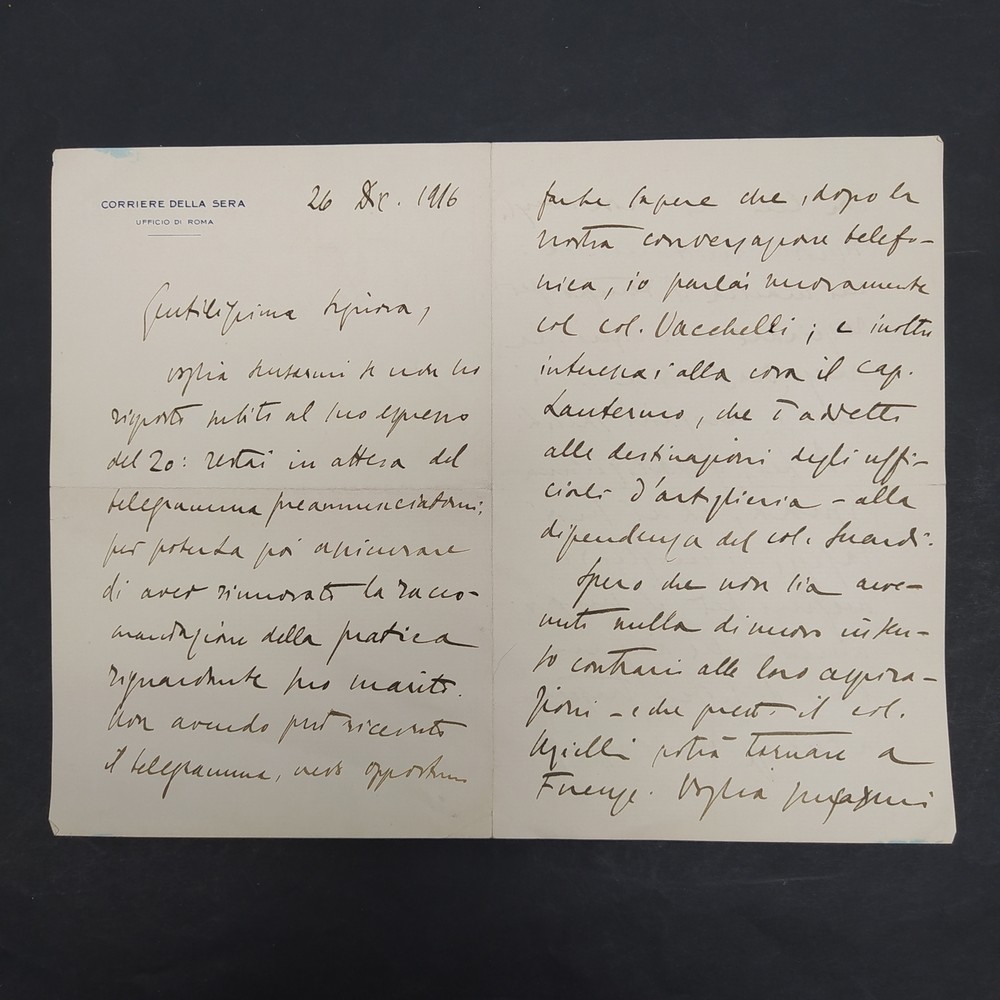 CORRIERE DELLA SERA
UFFICIO DI ROMA
26 Dic. 1916
Gentilissima Signora,
voglia scusarmi se non ho
risposto subito al suo espresso
del 20: restai in attesa del
telegramma preannunciatomi,
per poterLa poi assicurare
di aver rinnovato la racco-
mandazione della pratica
riguardante suo marito.
Non avendo però ricevuto
il telegramma, credo opportuno
farLe sapere che, dopo la
nostra conversazione telefo-
nica, io parlai nuovamente
col col. Vacchelli; e inoltre
interessai alla cosa il cap.
Lantermo, che è addetto
alle destinazioni degli uffi-
ciali d'artiglieria - alla
dipendenza del col. Suardi.
Spero che non sia avve-
nuto nulla di nuovo in sen-
so contrario alle loro aspira-
zioni - e che presto il col.
Uzielli potrà tornare a
Firenze. Voglia